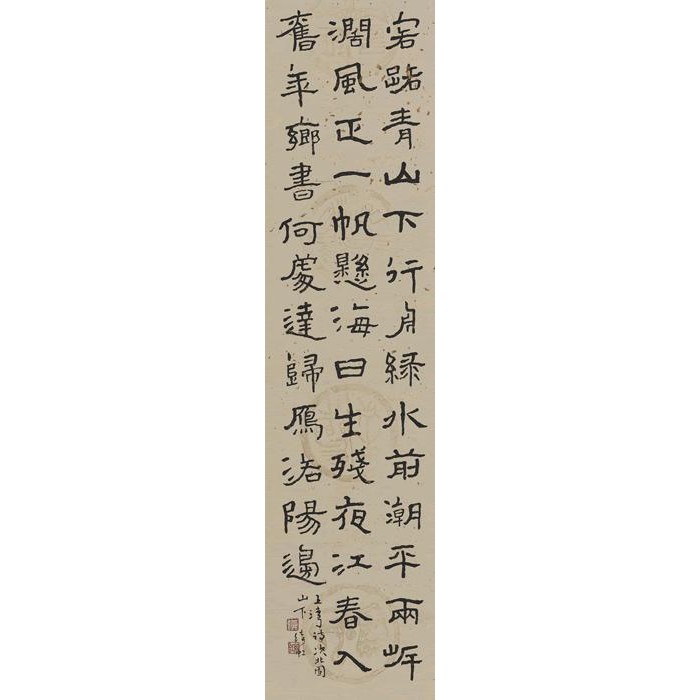 客路青山下行舟綠水前潮平兩岸
濶風正一帆懸海日生殘夜江春入
舊年鄉書何處達歸鴈洛陽邊
王灣詩次北固
山下